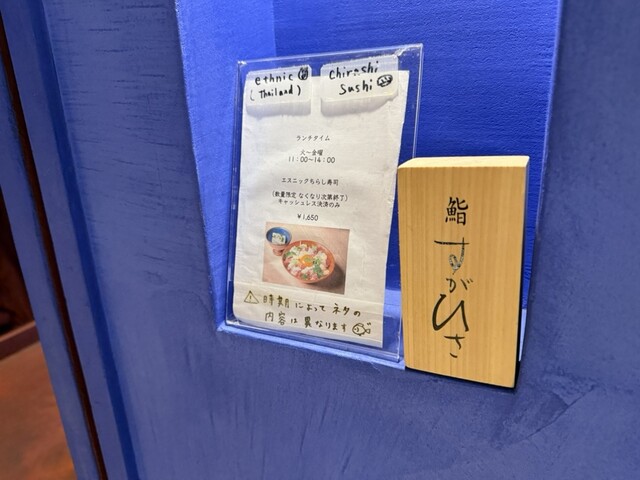 ethnic
(Thailand)
Chirashi
Sushi
ランチタイム
火～金曜
11:00～14:00
エスニックちらし寿司
(数量限定 なくなり次第終了)
キャッシュレス決済のみ
¥1,650
によってネタの
内容は異なります
鮨
すがひさ